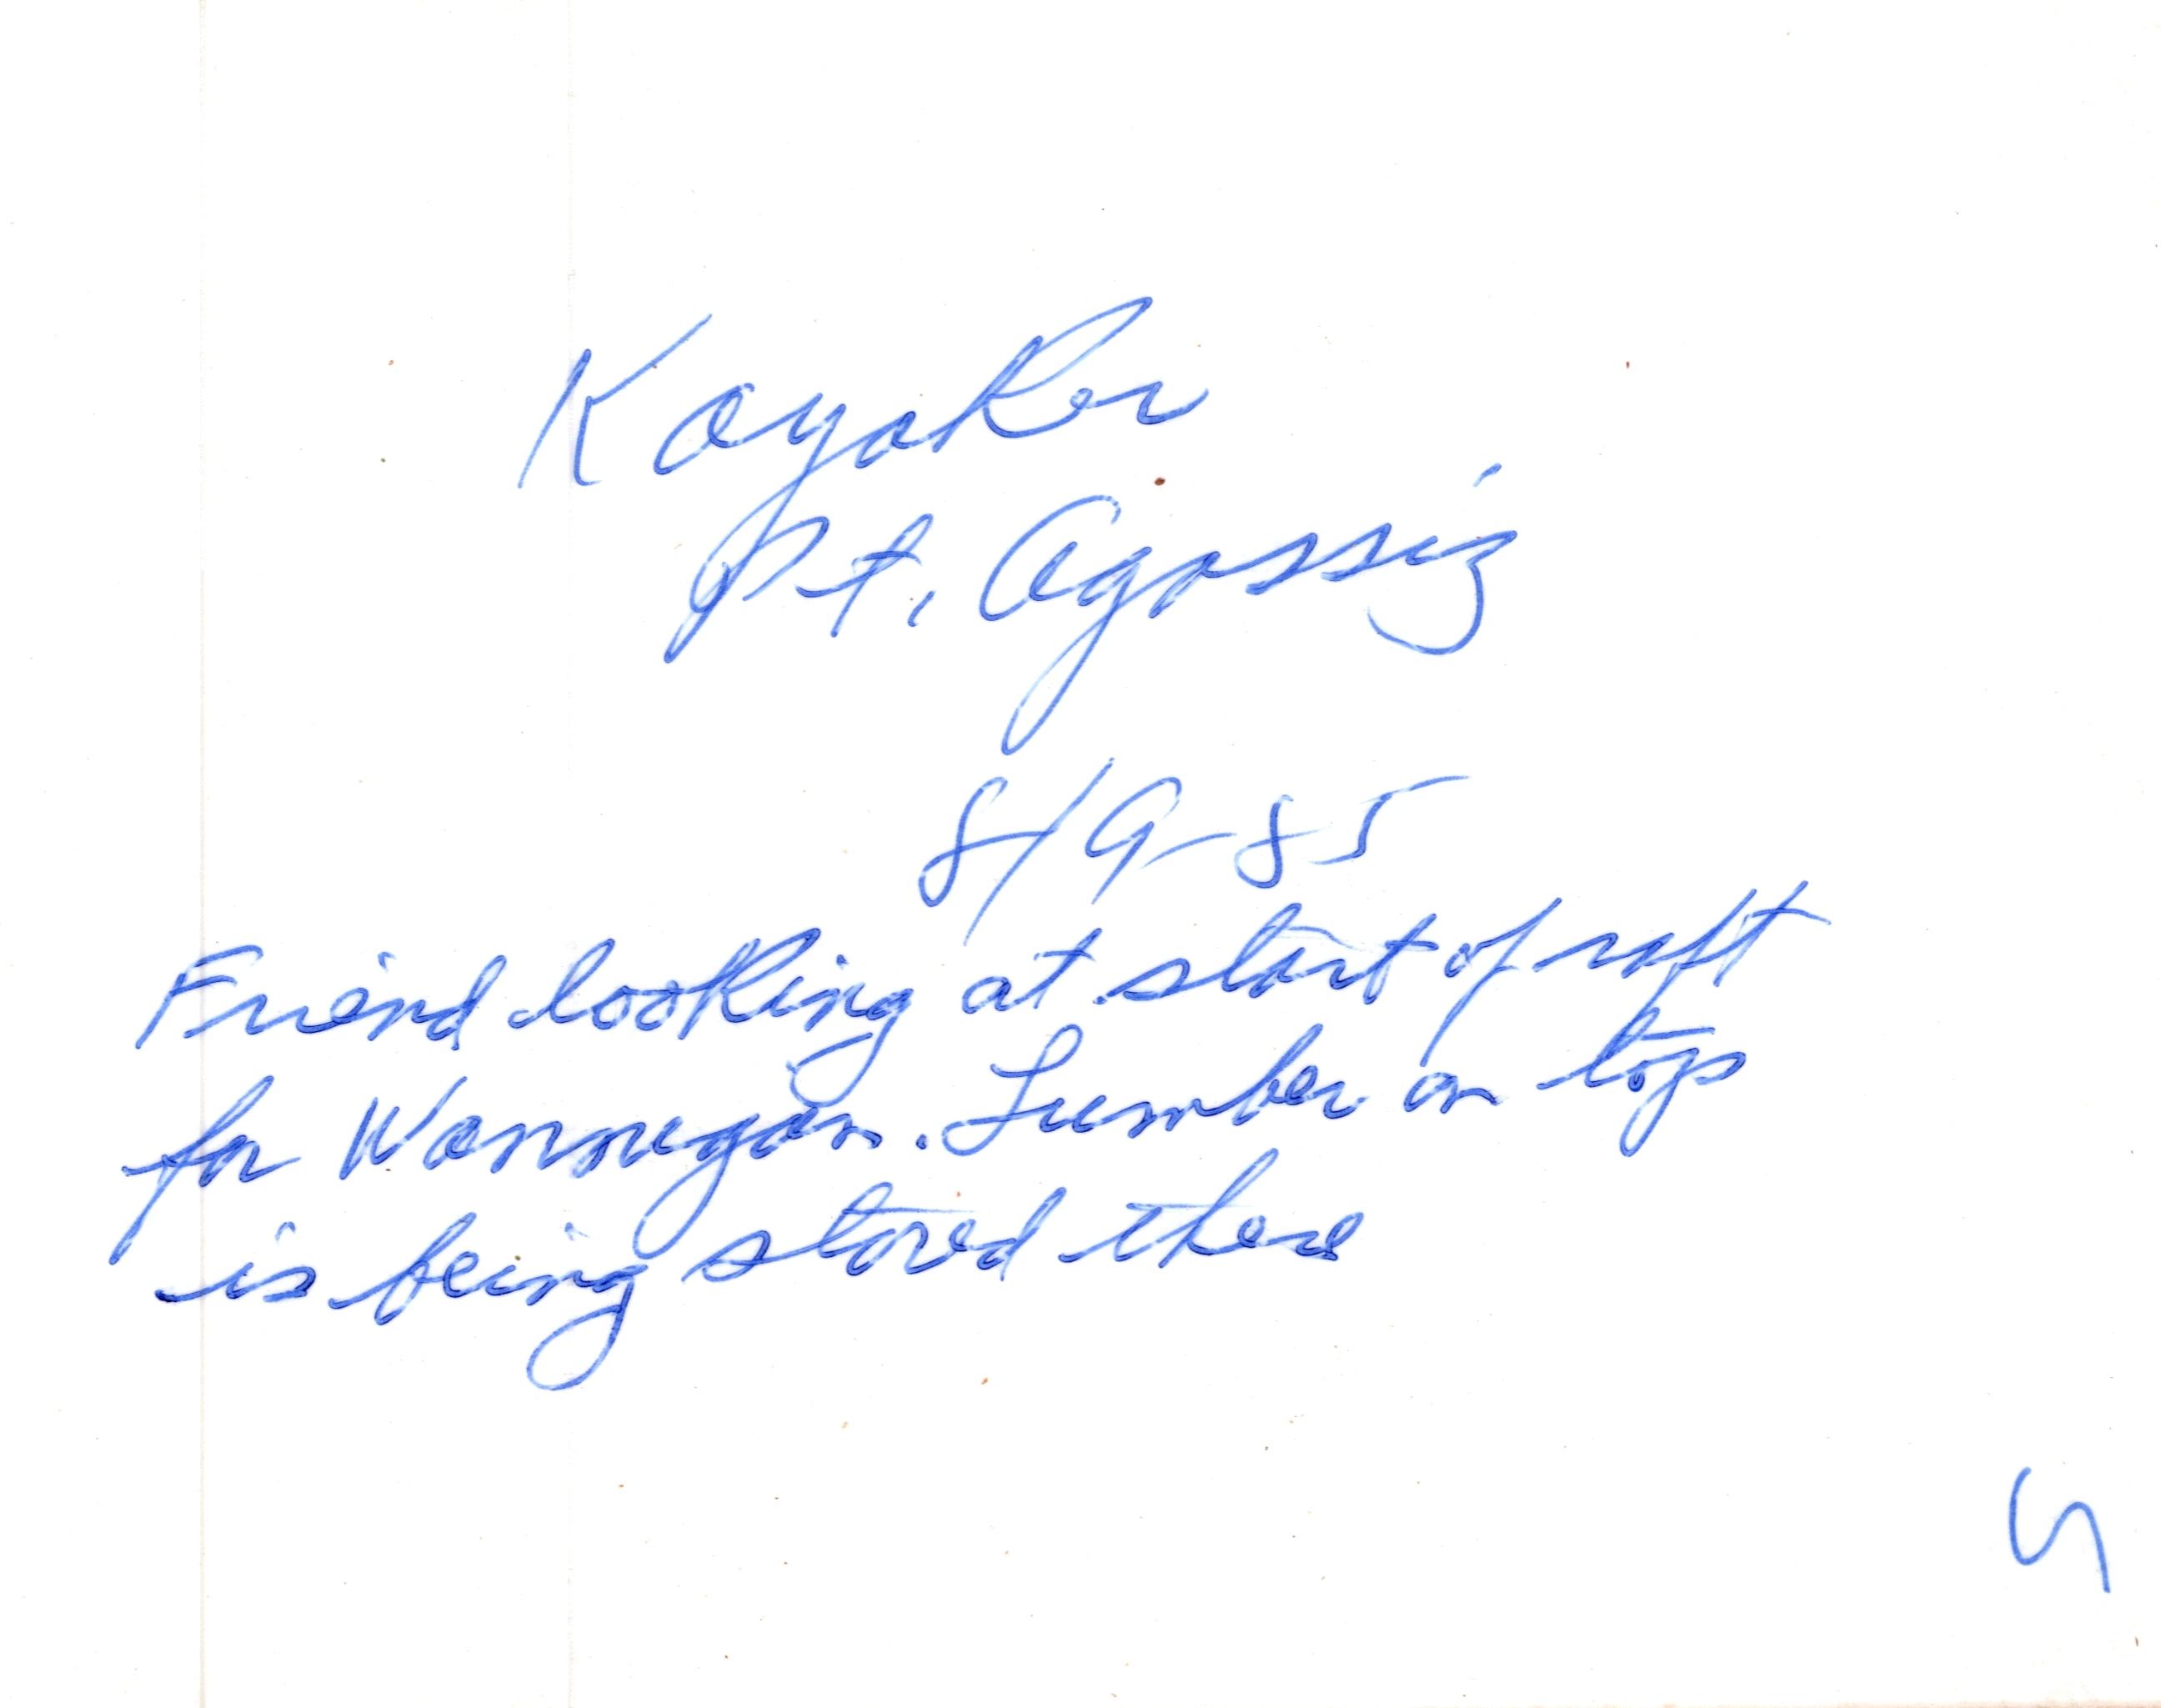 Kayaker
Pt. Agassiz
8/9-85
Friend looking at start of raft
for Wannugan. Lumber on top
is being stored there